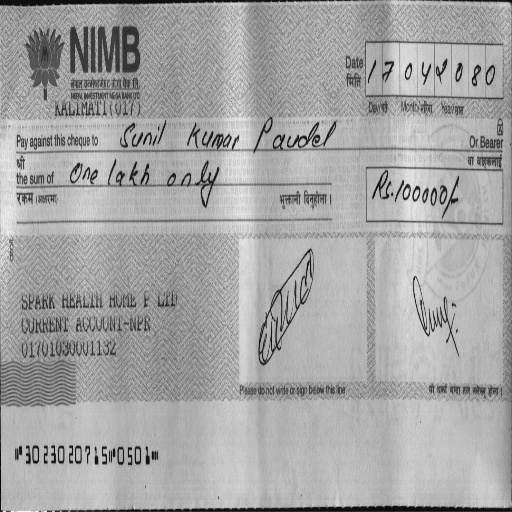 NIMB
नेपाल इन्भेष्टमेन्ट मेगा बैंक लि.
NEPAL INVESTMENT MEGA BANK LTD
KALIMATI(017)
Date मिति 17042080
Day/गते Month/महिना Year/साल
Pay against this cheque to Sunil Kumar Paudel Or Bearer
श्री वा वाहकलाई
the sum of One lakh only
रकम (अक्षरमा) भुक्तानी दिनुहोला । Rs.100000/-
SPARK HEALTH HOME P LTD
CURRENT ACCOUNT-NPR
01701030001132
Please do not write or sign below this line
⑈3023020715⑈0501⑈